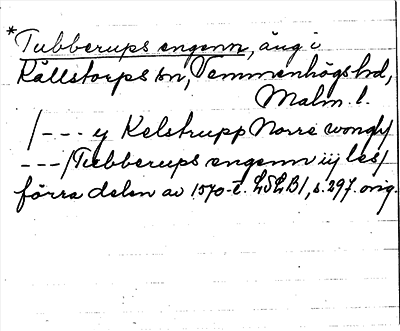 *Tubberups engenn, äng i
Källstorps sn, Vemmenhögs hd,
Malm. l.
/--- y Kelstrupp Norre wongh/
---/Tubberups engenn iij les/
förra delen av 1570-t. LSLB1, s. 297. orig.